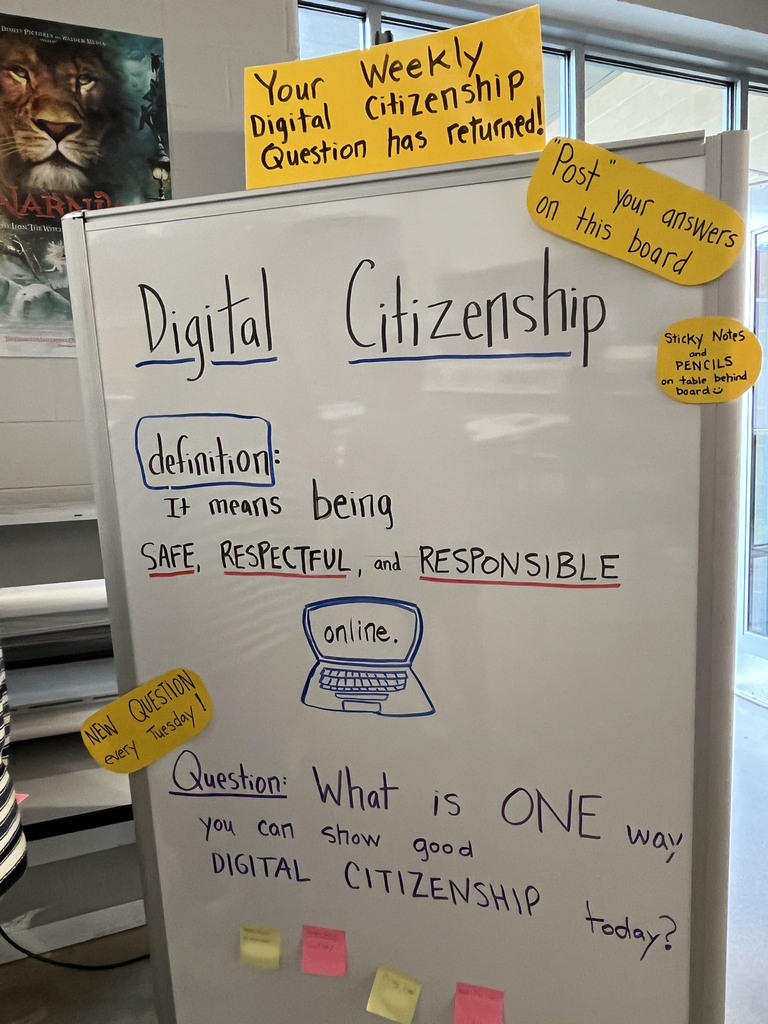 DISNEY PICTURES AND WALDEN MEDIA
NARNIA
THE LION, THE WITCH
Your Weekly
Digital Citizenship
Question has returned!
"Post" your answers
on this board
Sticky Notes
and
PENCILS
on table behind
board
Digital Citizenship
definition:
It means being
SAFE, RESPECTFUL, and RESPONSIBLE
online.
NEW QUESTION
every Tuesday!
Question: What is ONE way
you can show good
DIGITAL CITIZENSHIP today?